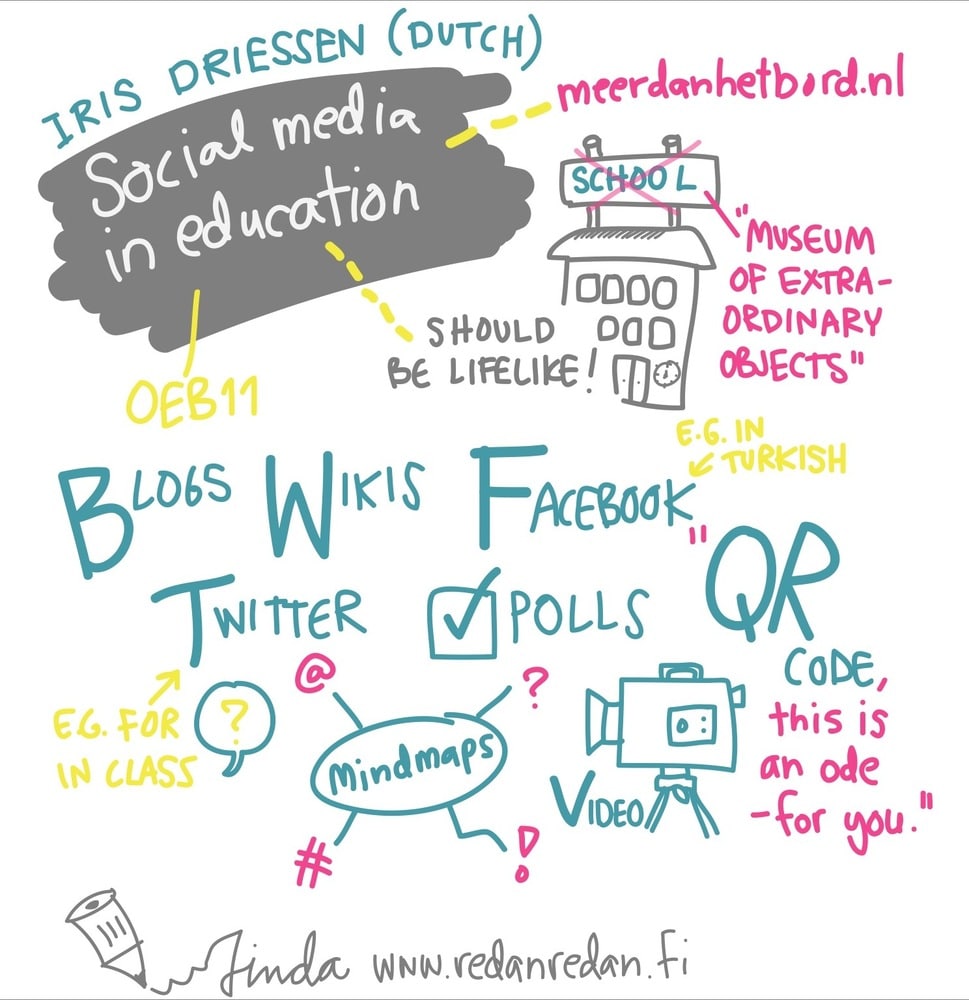 IRIS DRIESSEN (DUTCH)
Social media
in education
meerdanhetbord.nl
SCHOOL
"MUSEUM
OF EXTRA-
ORDINARY
OBJECTS"
SHOULD
BE LIFELIKE!
OEB11
E.G. IN
TURKISH
BLOGS WIKIS FACEBOOK
TWITTER POLLS
"QR
CODE,
this is
an ode
-for you."
E.G. FOR
IN CLASS
?
@
?
Mindmaps
#
!
VIDEO
Linda www.redanredan.fi